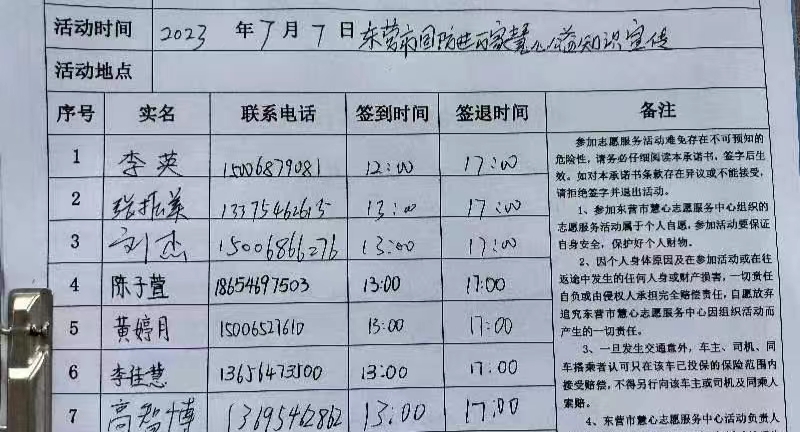 活动时间 2023 年 7 月 7 日 东营市国防进万家慧心公益知识宣传
活动地点
序号 实名 联系电话 签到时间 签退时间 备注
1 李英 15006879081 12:00 17:00
2 张振美 13375462615 13:00 17:00
3 刘杰 15006866276 13:00 17:00
4 陈子萱 18654697503 13:00 17:00
5 黄婷月 15006527610 13:00 17:00
6 李佳慧 13656473500 13:00 17:00
7 高智博 13695462862 13:00 17:00
参加志愿服务活动难免存在不可预知的
危险性，请务必仔细阅读本承诺书，签字后生
效。如对本承诺书条款存在异议或不能接受，
请拒绝签字并退出活动。
1、参加东营市慧心志愿服务中心组织的
志愿服务活动属于个人自愿，参加活动要保证
自身安全，保护好个人财物。
2、因个人身体原因及在参加活动或在往
返途中发生的任何人身或财产损害，一切责任
自负或由侵权人承担完全赔偿责任，自愿放弃
追究东营市慧心志愿服务中心因组织活动而
产生的一切责任。
3、一旦发生交通意外，车主、司机、同
车搭乘者认可只在该车已投保的保险范围内
接受赔偿，不得另行向该车主或司机及同乘人
索赔。
4、东营市慧心志愿服务中心活动负责人